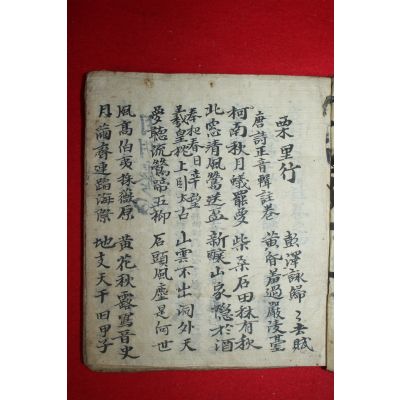 栗里竹
唐詩正音輯註卷
彭澤詠歸々去賦
黃昏若過嚴陵臺
柯南秋月蟻罷夢 柴桑石田秫有秋
北窓清風鶯送 新 山家隱於酒
奉和春日幸望
羲皇枕上臥太古 山雲不出洞外天
愛聽流鶯蹄五柳 石頭風塵是何世
風高伯夷採薇原 黃花秋露寫晉史
月 連蹈海際 地支天干田甲子